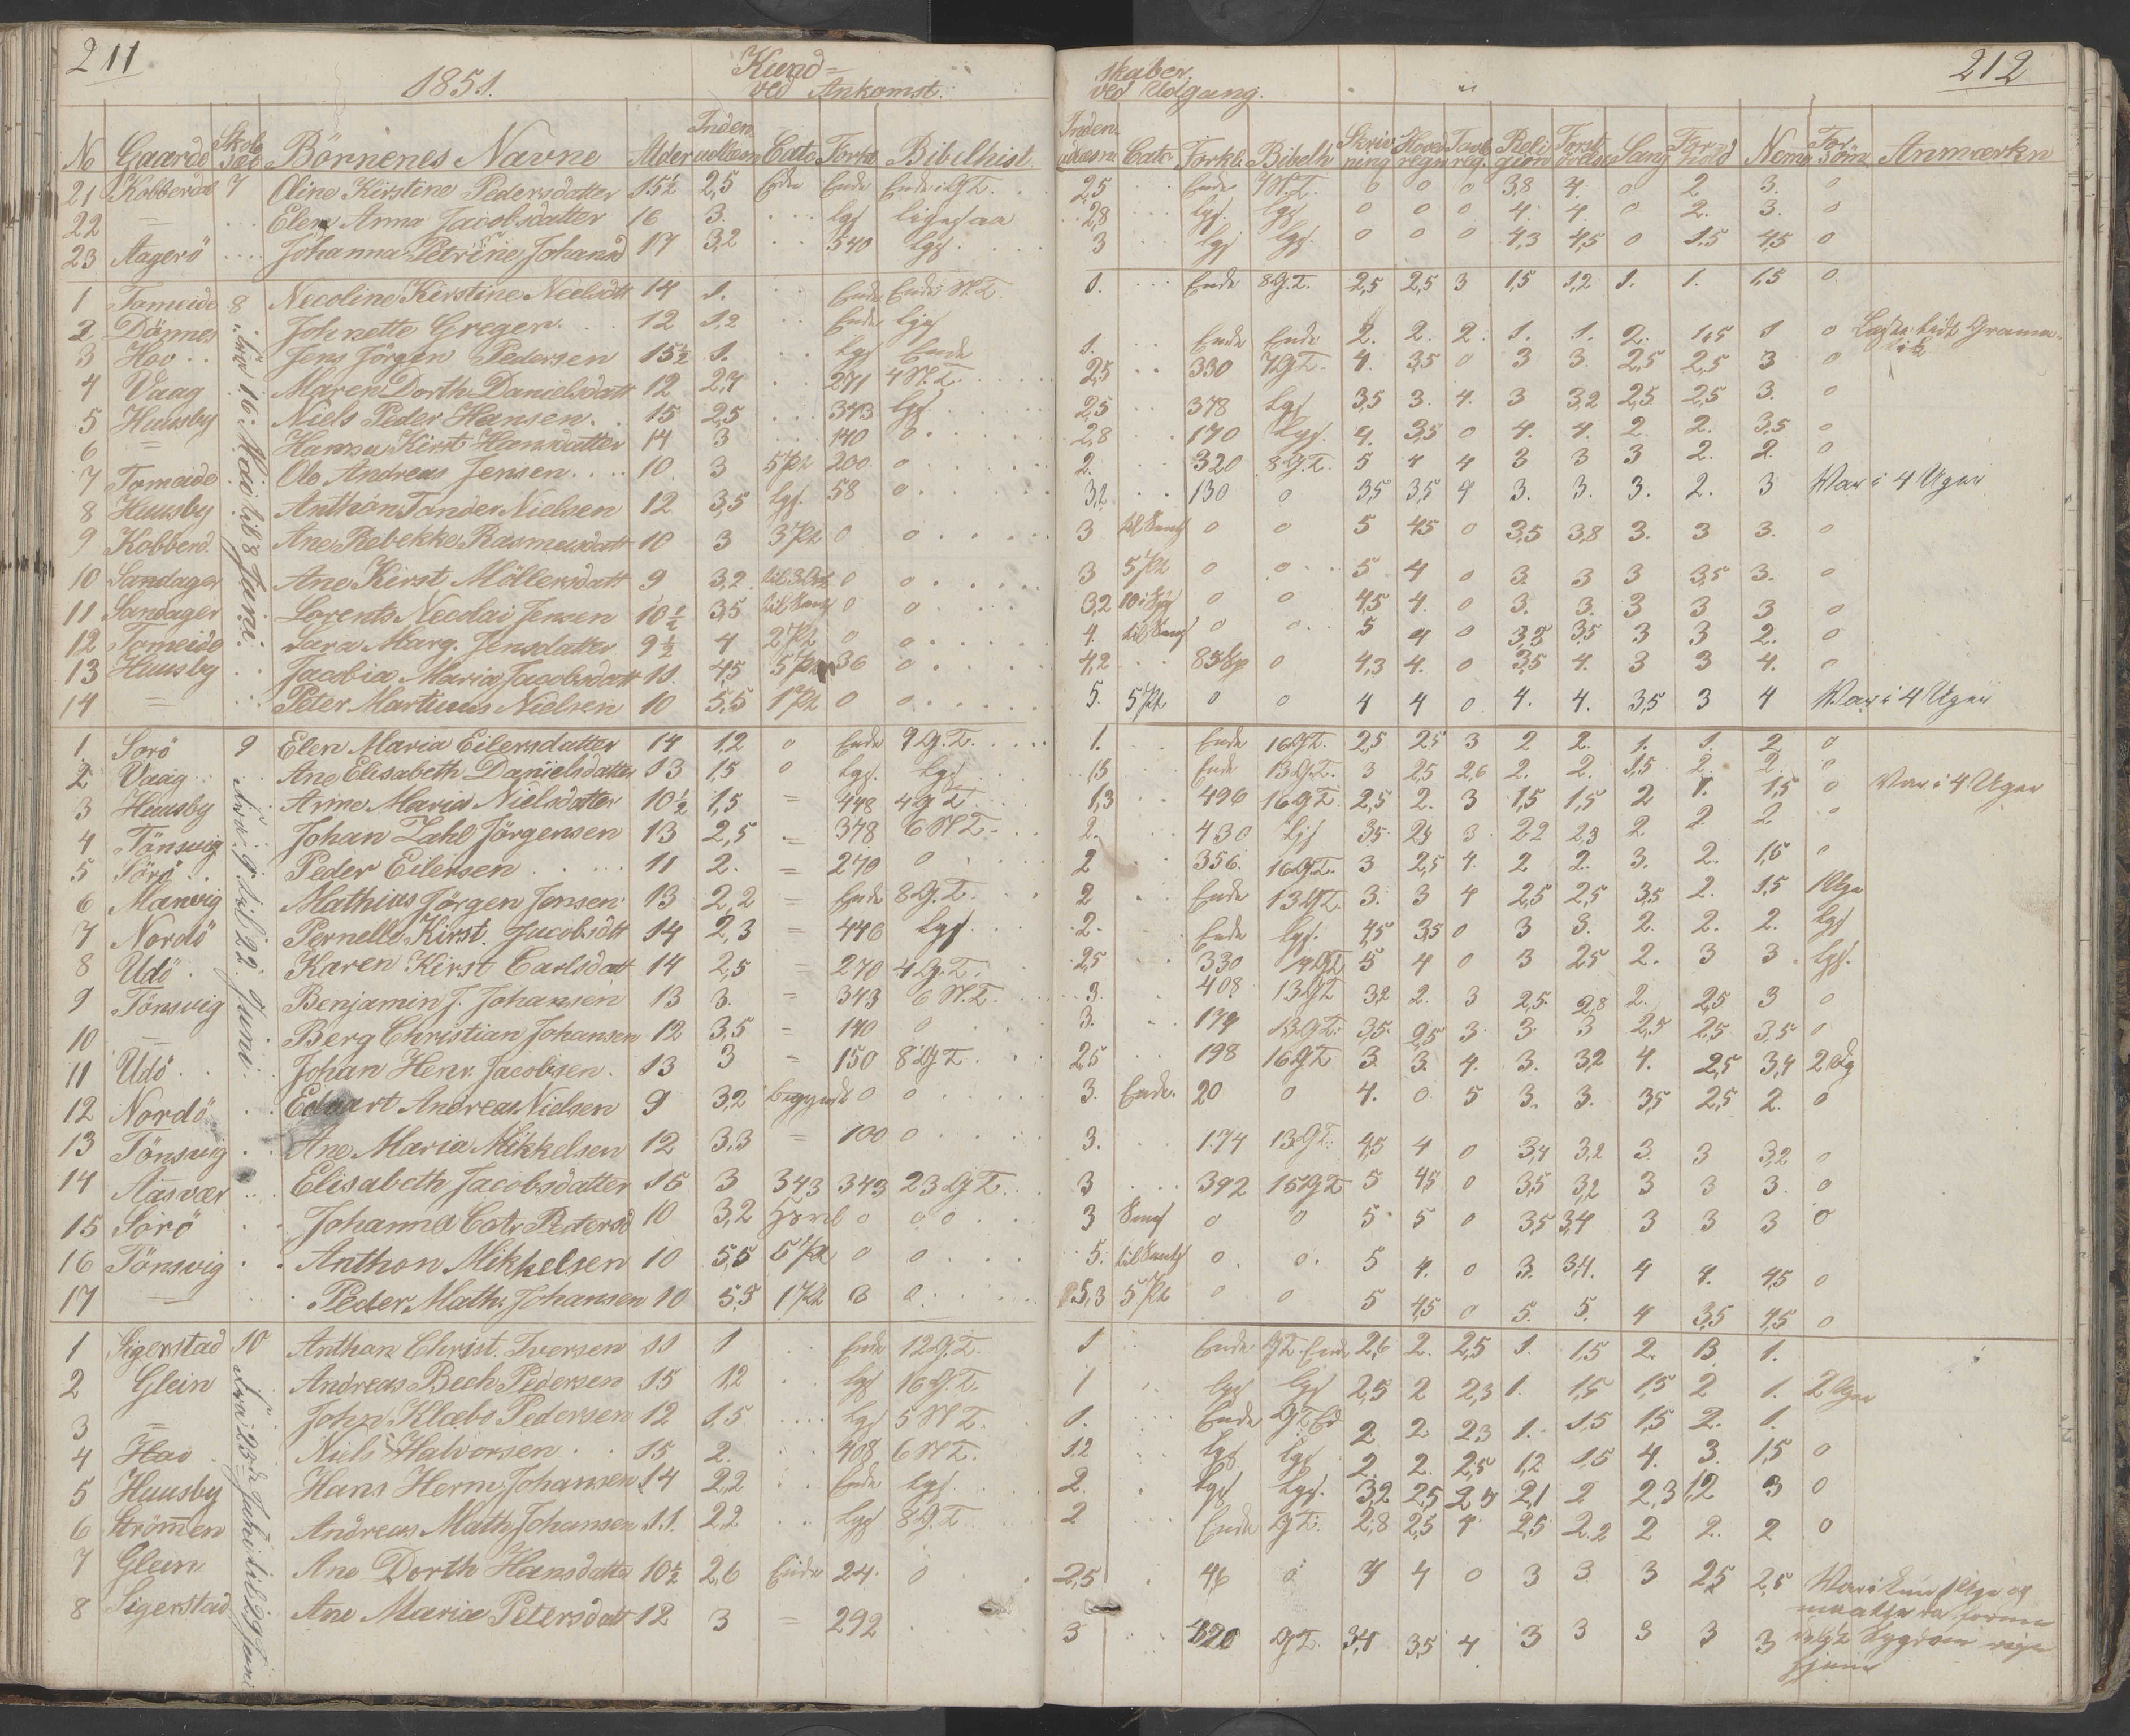 211
1851.
Kund=
ved Ankomst.
No Gaarde Skole Sæd Börnenes Navne Alder Inden udlæsn Cate Forkl. Bibelhist.
21 Kobberdal 7 Oline Kirstine Pedersdatter 15½ 2,5 Ende Ende Ende i G.T.
22 = Elen Anna Jacobsdatter 16 3. lgs ligesaa
23 Aagerö Johanna Petrine Johansd 17 3,2 540 lgs.
1 Tomeide 8 Necoline Kirstine Neelsdtt 14 1. Ende Ende N.T.
2 Dönnes Johnette Greger. 12 1,2 Ende lgs
3 Hov Jens Jörgen Pedersen 15½ 1. lgs Ende
4 Vaag Maren Dorth Danielsdatt 12 2,7 271 4 N.T.
5 Huusby Niels Peder Hansen. 15 2,5 343 lgs.
6 = Hanna Kirst Hansdatter 14 3 140 0
7 Tomeide Ole Andreas Jensen 10 3 5 Pt 200 0
8 Huusby Anthon Tander Nielsen 12 3,5 lgs. 58 0
9 Kobberd. Ane Rebekke Rasmusdatt 10 3 3 Pt 0 0
10 Sandager Ane Kirst Möllersdatt 9 3,2 0 0
11 Sandager Lorents Necolai Jensen 10½ 3,5 0 0
12 Tomeide Sara Marg. Jensdatter 9½ 4 2 Pt 0 0
13 Huusby Jacobia Maria Jacobsdatt 11. 4,5 5 Pt 36 0
14 = Peter Martinus Nielsen 10 5,5 1 Pt 0 0
fra 16 Mai til 8 Juni.
1. Sorö 9 Elen Maria Eilersdatter 14 1,2 0 Ende 9 G.T.
2 Vaag Ane Elisabeth Danielsdatter 13 1,5 0 lgs. lgs
3 Huusby Anne Maria Nielsdatter 10½ 1,5 = 448 4 G T.
4 Tönsvig Johan Zahl Jörgensen 13 2,5 = 378 6 N T.
5 Sörö Peder Eilersen 11 2. = 270 0
6 Manvig Mathias Jörgen Jensen 13 2,2 = Ende 8 G.T.
7 Nordö Pernelle Kirst. Jacobsdtt 14 2,3 = 446 lgs.
8 Udö Karen Kirst Carlsdatt 14 2,5 = 270 4 G.T.
9 Tönsvig Benjamin J. Johansen 13 3. = 343 6 N.T.
10 = Berg Christian Johansen 12 3,5 = 140 0
11 Udö Johan Henr. Jacobsen. 13 3 = 150 8 G T
12 Nordö Edvart Andreas Nielsen 9 3,2 begyndt 0 0
13 Tönsvig Ane Maria Mikkelsen 12 3,3 = 100 0
14 Aasvær Elisabeth Jacobsdatter 15 3 343 343 23 G T.
15 Sörö Johanna Catr. Pedersd 10 3,2 0 0 0
16 Tönsvig Anthon Mikkelsen 10 5,5 5 Pt 0 0
17 — Peder Math. Johansen 10 5,5 1 Pt 0 0
fra 9 til 22 Juni.
1 Sigerstad 10 Anthon Christ. Iversen 11 1 Ende 12 G.T.
2 Glein Andreas Bech Pedersen 15 1,2 lgs 16 G.T.
3 = John Klæbo Pedersen 12 1,5 lgs 5 N T.
4 Hov Niels Halvorsen 15 2. 408 6 N T.
5 Huusby Hans Herm. Johansen 14 2,2 Ende lgs.
6 Strömen Andreas Math Johansen 11. 2,2 lgs 8 G.T.
7 Glein Ane Dorth Hansdatter 10½ 2,6 Ende 24. 0
8 Sigerstad Ane Maria Petersdatt 12 3 = 292
fra 23de Juni til 29 Juni
212
skaber.
ved Udgang.
Inden udlæsn. Catc. Forkl. Bibelh Skriv ning Hoved regn Tavle reg. Reli gion Forst. Sang For hold Nemme For söm Anmærkn
2,5 Ende 7 N.T. 0 0 0 3,8 4. 0 2 3. 0
2,8 lgs. lgs 0 0 0 4. 4. 0 2. 3. 0
3 lgs lgs. 0 0 0 4,3 4,5 0 1.5 4,5 0
1. Ende 8 G.T. 2,5 2,5 3 1,5 1,2 1. 1. 1,5 0.
1. Ende Ende 2. 2. 2. 1. 1. 2. 1,5 1 0 Læste lidt Grama-
tik
2,5 330 7 G T. 4. 3,5 0 3 3. 2,5 2,5 3 0
2,5 378 lgs 3,5 3. 4. 3 3,2 2,5 2,5 3. 0
2,8 170 lgs. 4. 3,5 0 4. 4. 2. 2. 3,5 0
2. 320 8 G.T. 5 4 4 3 3 3 2. 2. 0
3,2 130 0 3,5 3,5 4 3. 3. 3. 2. 3 Var i 4 Uger
3 0 0 5 4,5 0 3,5 3,8 3. 3 3. 0
3 5 Pt 0 0 5 4 0 3. 3 3 3,5 3. 0
3,2 0 0 4,5 4. 0 3. 3. 3 3 3 0
4. 0 0 5 4 0 3,5 3,5 3 3 2. 0
4,2 85 Sp 0 4,3 4. 0 3,5 4. 3 3 4. 0
5. 5 Pt. 0 0 4 4 0 4. 4. 3,5 3 4 Var i 4 Uger
1. Ende 16 G T. 2,5 2,5 3 2 2. 1. 1. 2 0
1,5 Ende 13 G.T. 3 2,5 2,6 2. 2. 1,5 2. 2. 0
1,3 496 16 G T. 2,5 2. 3 1,5 1,5 2 1. 1,5 0 Var i 4 Uger
2. 430 lgs 3,5 2,5 3 2,2 2,3 2 2 2 0
2 356. 16 G.T. 3 2,5 4. 2 2. 3. 2. 1,5 0
2 Ende 13 G.T. 3. 3 4 2,5 2,5 3,5 2. 1,5 1 Uge
2. Ende lgs. 4,5 3,5 0 3 3. 2. 2. 2. lgs
2,5 330 14 G T 5 4 0 3 2,5 2. 3 3. lgs.
3. 408 13 G T 3,2 2. 3 2,5 2,8 2. 2,5 3 0
3. 174 13 G T. 3,5 2,5 3 3. 3 2,5 2,5 3,5 0
2,5 198 16 G T 3. 3. 4. 3. 3,2 4. 2,5 3,4 2 Ug
3. Ende. 20 0 4. 0 5 3. 3. 3,5 2,5 2. 0
3. 174 13 G T. 4,5 4 0 3,4 3,2 3. 3 3,2 0
3 392 15 G T 5 4,5 0 3,5 3,2 3 3 3. 0
3 0 0 5 5 0 3,5 3,4 3 3 3 0
5. 0 0. 5 4. 0 3. 3,4. 4 4. 4,5 0
5,3 5 Pt 0 0 5 4,5 0 5. 5. 4 3,5 4,5 0
1 Ende G T. Ende 2,6 2. 2,5 1. 1,5 2. 1,3 1.
1 lgs lgs 2,5 2 2,3 1. 1,5 1,5 2 1. 2 Uger
1. Ende G T. Ed 2 2 2,3 1. 1,5 1,5 2. 1.
1,2 lgs lgs 2. 2. 2,5 1,2 1,5 4. 3. 1,5 0
2. lgs lgs. 3,2 2,5 2,4 2,1 2 2,3 1,2 3 0
2 Ende G T. 2,8 2,5 4. 2,5 2.2 2 2. 2 0
2,5 46 0 4 4 0 3 3. 3 2,5 2,5 Var i kun 1 Uge og
maatte da formedelst Sygdom reise
hjem
3 320 G T. 3,4 3,5 4 3 3 3 3 3